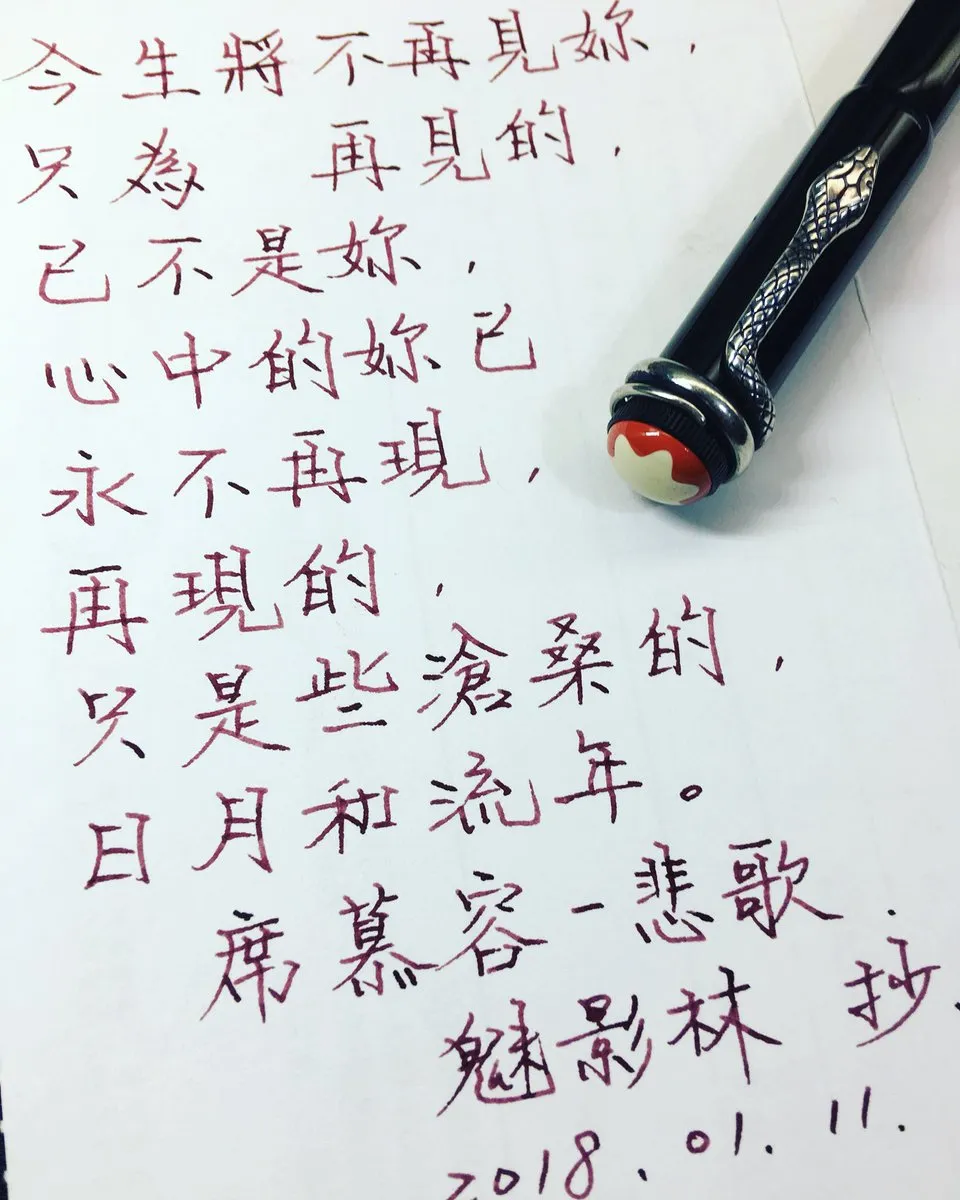 今生將不再見妳，
只為　再見的，
已不是妳，
心中的妳已
永不再現，
再現的，
只是些滄桑的，
日月和流年。
席慕容-悲歌.
魅影林 抄.
2018.01.11.